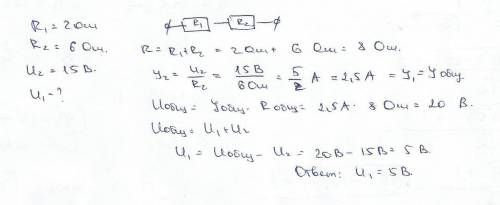 R₁ = 2 Ом
R₂ = 6 Ом.
U₂ = 15 В.
U₁ - ?
R₁ R₂
R = R₁ + R₂ = 2 Ом + 6 Ом = 8 Ом.
У₂ = U₂/R₂ = 15 В/6 Ом = 5/2 А = 2,5 А = У₁ = Уобщ.
Uобщ = Уобщ · Rобщ = 2,5 А · 8 Ом = 20 В.
Uобщ = U₁ + U₂
U₁ = Uобщ - U₂ = 20 В - 15 В = 5 В.
Ответ: U₁ = 5 В.